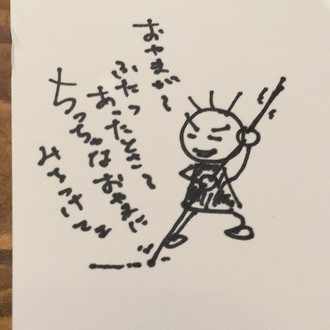 おやまが〜
ふたつ
あったとさ〜
ちっちゃなおやまに
みちつけて〜